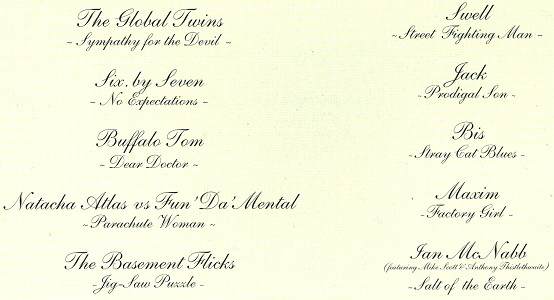 The Global Twins
~ Sympathy for the Devil ~
Six. by Seven
~ No Expectations ~
Buffalo Tom
~ Dear Doctor ~
Natacha Atlas vs Fun'Da'Mental
~ Parachute Woman ~
The Basement Flicks
~ Jig-Saw Puzzle ~
Swell
~ Street Fighting Man ~
Jack
~ Prodigal Son ~
Bis
~ Stray Cat Blues ~
Maxim
~ Factory Girl ~
Ian McNabb
(featuring Mike Scott & Anthony Thistlethwaite)
~ Salt of the Earth ~